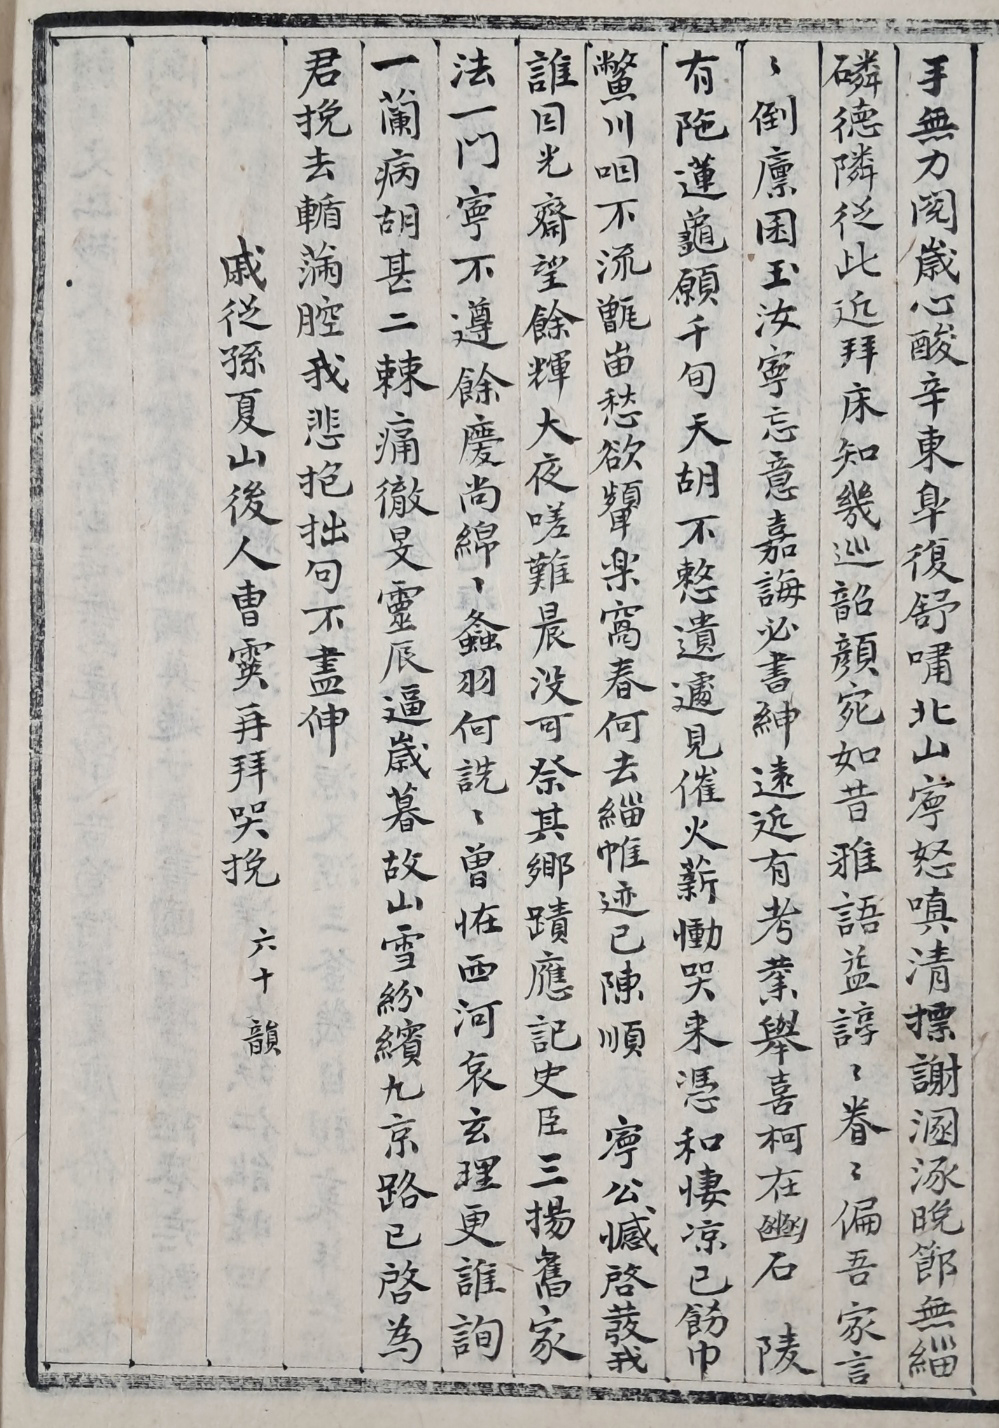 手無力閱歲心酸辛東皐復舒嘯北山寧怒嗔清摽謝溷涿晩節無緇
磷德隣従此近拜床知幾巡韶顏宛如昔雅語益諄〻眷〻偏吾家言
〻倒廩囷玉汝寧忘意嘉誨必書紳遠近有考槃舉喜柯在幽石 陵
有陁蓮龜願千旬天胡不憗遺遽見催火薪慟哭来憑和悽凉已飭巾
鱉川咽不流甑峀愁欲顰楽窩春何去緇帷迹已陳順 寧公憾啓蕟我
誰因光齋望餘輝大夜嗟難晨没可祭其鄉蹟應記史臣三揚舊家
法一門寧不遵餘慶尚綿〻螽羽何詵〻曾恠西河哀玄理更誰詢
一蘭病胡甚二棘痛徹旻靈辰逼歲暮故山雪紛繽九京路已啓為
君挽去輴滿腔我悲抱拙句不盡伸
戚従孫夏山後人曺霙再拜哭挽 六十韻